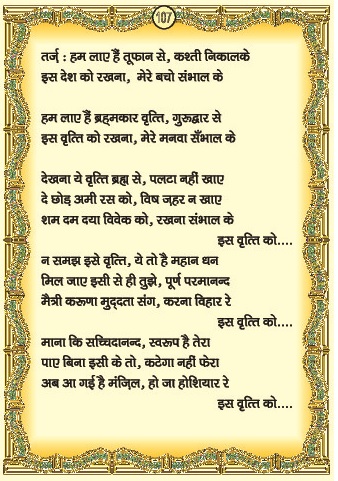 107
तर्ज़ : हम लाए हैं तूफान से, कश्ती निकालके
इस देश को रखना, मेरे बचो संभाल के
हम लाए हैं ब्रह्मकार वृत्ति, गुरूद्वार से
इस वृत्ति को रखना, मेरे मनवा सँभाल के
देखना ये वृत्ति ब्रह्म से, पलटा नहीं खाए
दे छोड़ अमी रस को, विष ज़हर न खाए
शम दम दया विवेक को, रखना संभाल के
इस वृत्ति को....
न समझ इसे वृत्ति, ये तो है महान धन
मिल जाए इसी से ही तुझे, पूर्ण परमानन्द
मैत्री करूणा मुद्दता संग, करना विहार रे
इस वृत्ति को....
माना कि सच्चिदानन्द, स्वरूप है तेरा
पाए बिना इसी के तो, कटेगा नहीं फेरा
अब आ गई है मंज़िल, हो जा होशियार रे
इस वृत्ति को....